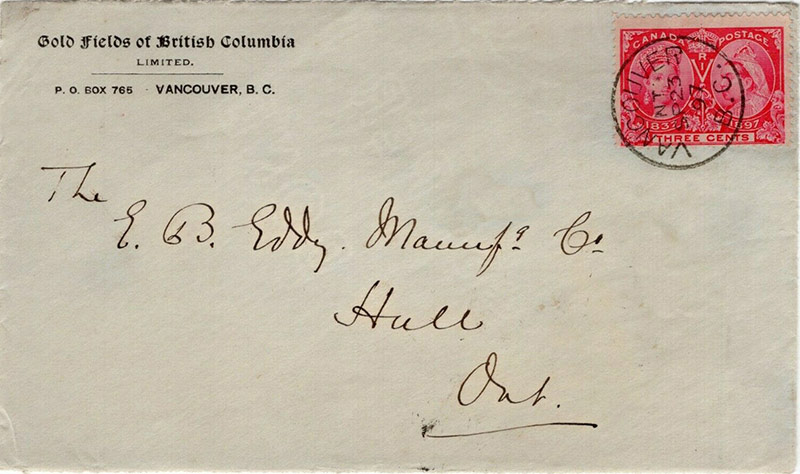 Gold Fields of British Columbia
LIMITED.
P. O. BOX 765 · VANCOUVER, B. C.
CANADA POSTAGE
V R I
1837 1897
THREE CENTS
VANCOUVER B.C.
NT
SP 23
97
The
E. B. Eddy. Manufg Co
Hull
Ont.